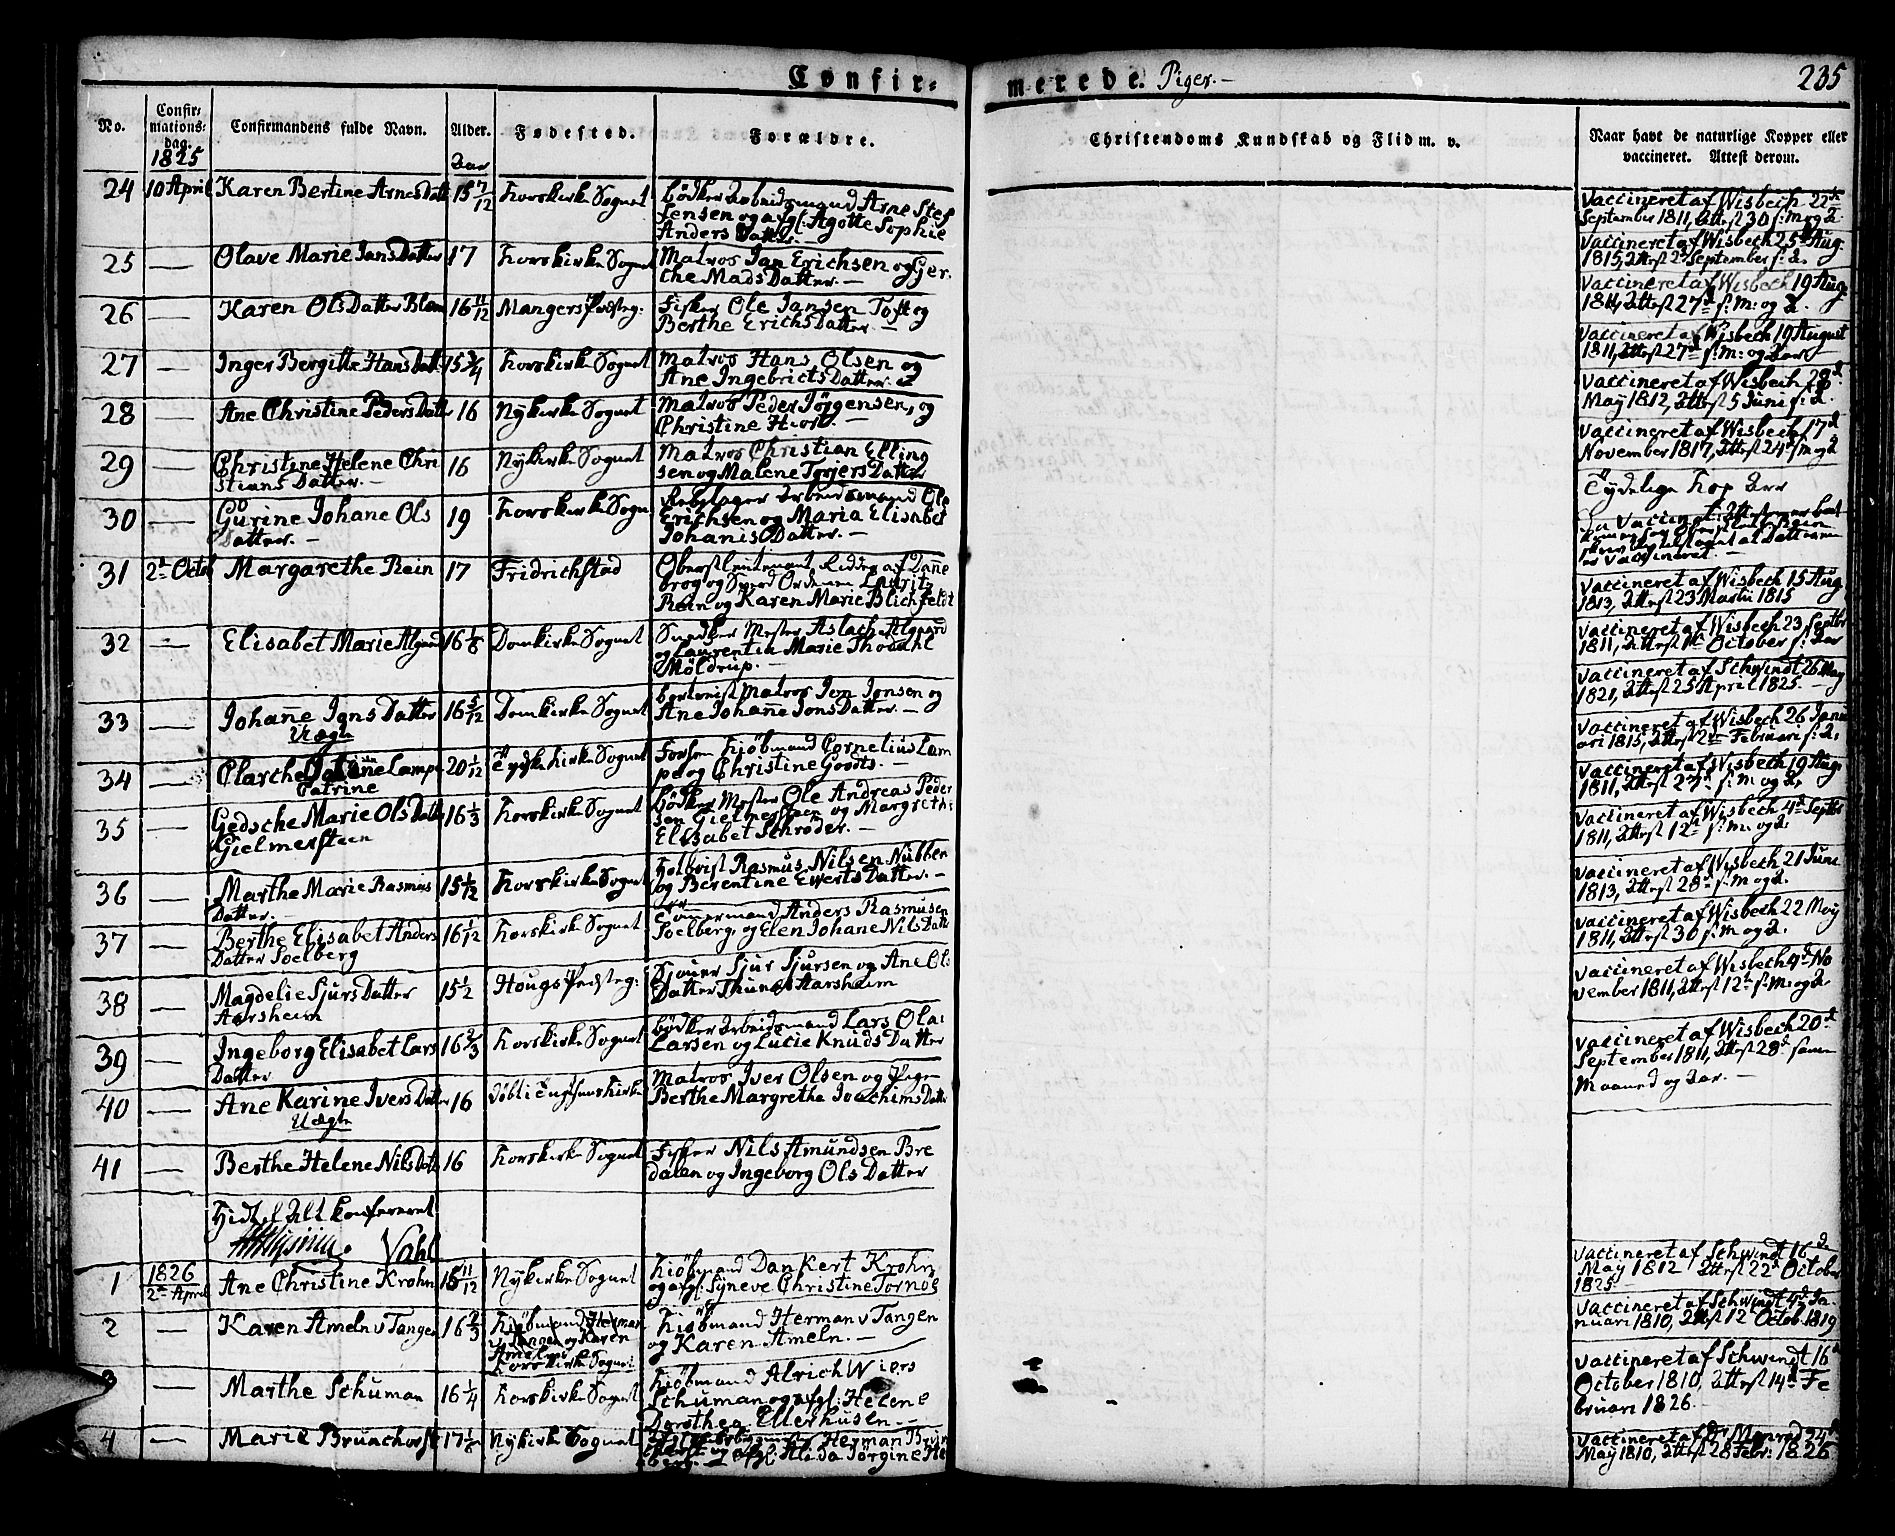 Confir- merede. Piger.- 235
No. Confir- mations- dag. Confirmandens fulde Navn. Alder. Fødested. Forældre. Christendoms Kundskab og Flid m. v. Naar havt de naturlige Kopper eller vaccineret. Attest derom.
1825 Aar
24 10 April Karen Bertine Arnes Datt 15 7/12 Korskirke Sognet Bödker Arbeidsmand Arne Stef
fensen og afgl: Agotte Sophie
Anders Datter.- Vaccineret af Wisbech
September 1811, Attest 30 f: M og A
25 — Olave Marie Jans Datter 17 Korskirke Sognet Matros Jan Erichsen og Ger.
the Mads Datter.- Vaccineret af Wisbech 25 Aug.
1815, Attest 2 September f: A.
26 — Karen Ols Datter Blom 16 11/12 Mangers Præsteg: Fisker Ole Jansen Toft og
Berthe Erichs Datter.- Vaccineret af Wisbech 19 Aug.
1811, Attest 27 f: M: og A.
27 — Inger Bergitte Hans Datt 15 3/4 Korskirke Sognet Matros Hans Olsen og
Ane Ingebricts Datter.- Vaccineret af Wisbech 19 August
1811, Attest 27 f: M: og Aar
28 — Ane Christine Peders Datt 16 Nykirke Sognet Matros Peder Jörgensen, og
Christine Hiort.- Vaccineret af Wisbech 28
May 1812, Attest 5 Juni f: A.
29 — Christine Helene Chri
stians Datter.- 16 Nykirke Sognet Matros Christian Elling
sen og Malene Torjers Datter Vaccineret af Wisbech 17
November 1817, Attest 24 f: M og A
30 — Gurine Johane Ols
Datter.- 19 Korskirke Sogn Arbeidsmand Ola
Erichsen og Maria Elisabet
Johanis Datter.- Tydelige Kop Arr
31 2 Octob Margarethe Rein 17 Fridrichstad Oberstleutenant, Ridder af Dane
brog og Sverd Ordenen Lauritz
Rein og Karen Marie Blichfeldt Vaccineret af Wisbech 15 Aug.
1813, Attest 23 Martii 1815
32 — Elisabet Marie Algaard 16 1/8 Domkirke Sognet Snedker Mester Aslach Algaard
og Laurentia Marie
Möldrup.- Vaccineret af Wisbech 23 Septbr
1811, Attest October f: Aar
33 — Johane Jons Datter
Uægte 16 5/12 Domkirke Sognet Matros Jon Jonsen og
Ane Johane Jons Datter.- Vaccineret af Schwindt 26 May
1821, Attest 25 April 1825.-
34 — Clarche Lampe
Catrine 20 1/12 Tydske Kirke Sognet Kiöbmand Cornelius Lam
pe og Christine Goodts.- Vaccineret af Wisbech 26 Janu
ari 1815, Attest 2 Februari f: A.
35 — Gedsche Marie Ols Datter
Gielmersteen 16 1/3 Korskirke Sognet Bödker Mester Ole Andreas Peder
sen Gielmersteen og Margrethe
Elisabet Schröder.- Vaccineret af Wisbech 19 Aug.
1811, Attest 27 f: M og A.
36 — Marthe Marie Rasmus
Datter.- 15 1/12 Korskirke Sognet Rasmus Nilsen Nubben
og Berentine Ewerts Datter.- Vaccineret af Wisbech 4 Septbr
1811, Attest 12 f: M. og A.
37 — Berthe Elisabet Anders
Datter Soelberg 16 1/12 Korskirke Sognet Tömmermand Anders Rasmusen
Soelberg, og Elen Johane Nils Datt Vaccineret af Wisbech 21 Juni
1813, Attest 28 f: M og A.
38 — Magdelie Sjurs Datter
Aarsheim 15 1/2 Hougs Præsteg: Sjouer Sjur Sjursen og Ane Ols
Datter Aarsheim Vaccineret af Wisbech 22 May
1811, Attest 30 f: M og A.
39 — Ingeborg Elisabet Lars
Datter 16 2/3 Korskirke Sognet Bödker Arbeidsmand Lars Olai
Larsen og Lucie Knuds Datter Vaccineret af Wisbech 4 No
vember 1811, Attest 12 f: M: og A.
40 — Ane Karine Ivers Datter
Uægte 16 Matros Iver Olsen og Pige
Berthe Margrethe Joachims Datt Vaccineret af Wisbech 20
September 1811, Attest 28 samme
Maaned og Aar.-
41 — Berthe Helene Nils Datt 16 Korskirke Sognet Fisker Nils Amundsen Bre
dalen og Ingeborg Ols Datter
Hidtil Alt Konfereret
Vahl
1 1826
2 April Ane Christine Krohn 16 11/12 Nykirke Sognet Kiöbmand Dankert Krohn
og afgl: Syneve Christine Tornöe Vaccineret af Schwindt 16
May 1812 Attest 22 October
1825
2 — Karen Ameln v Tangen 16 2/3 Kiöbmand Herman
v Tangen og Karen
Amelns
Korskirke Sognet Kiöbmand Herman v Tangen
og Karen Ameln.- Vaccineret af Schwindt 4 Ja-
nuari 1810, Attest 12 Octob. 1819
3 — Marthe Schuman 16 1/4 Korskirke Sognet Kiöbmand Alrich Wiers
Schuman og afgl: Helene
Dorothea Ellerhusen.- Vaccineret af Schwindt 16
October 1810, Attest 14 Fe
bruari 1826.
4 — Marie Bruachorst 17 1/8 Nykirke Sognet Herman Brun
og afgl Alida Jorgine Vaccineret af Dr Monrad 24
May 1810, Attest 28 Febr: 1826